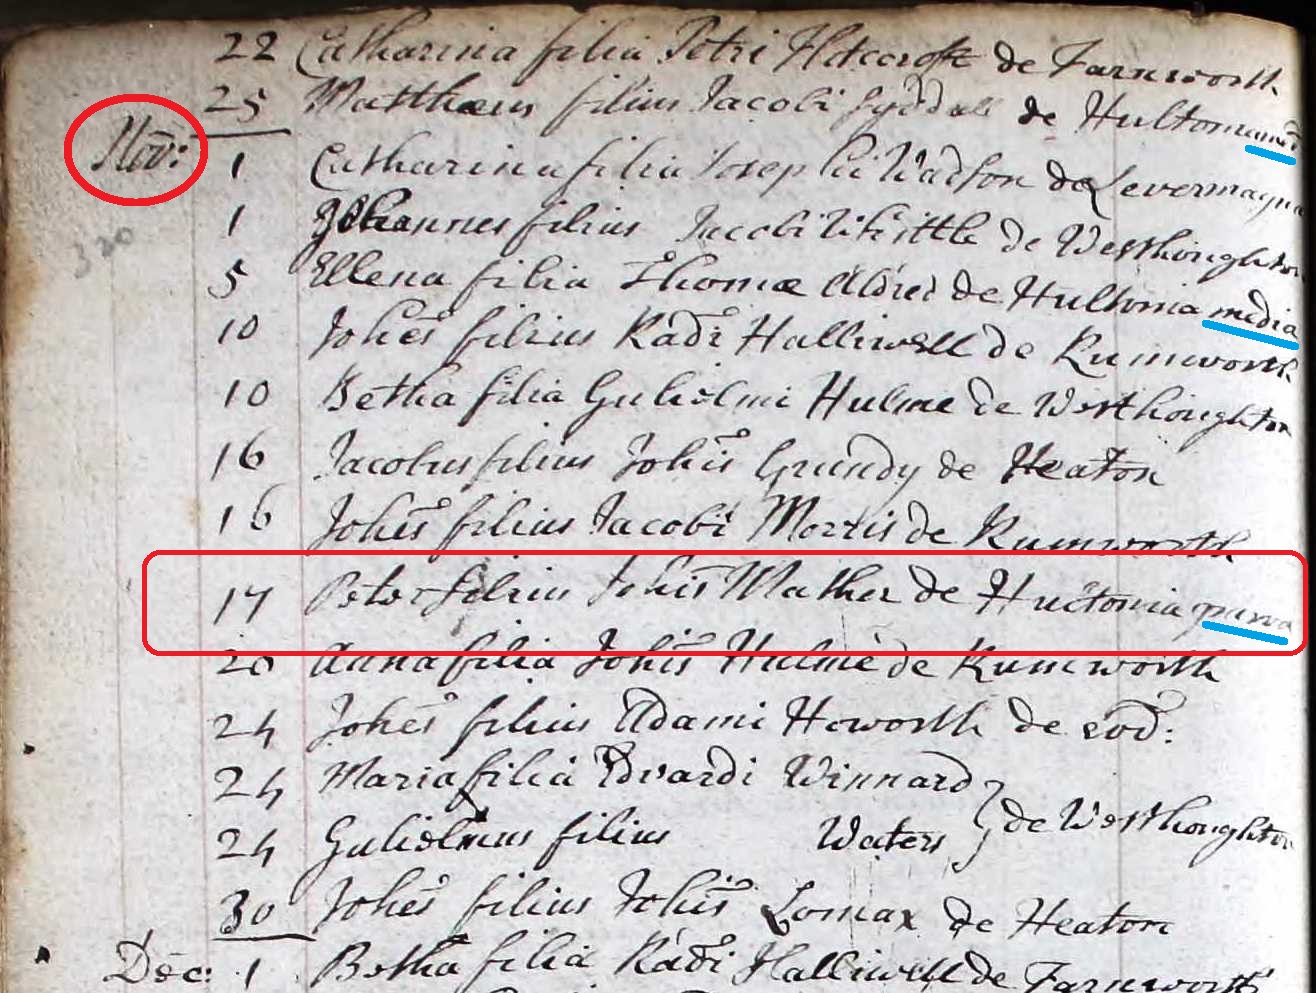 22 Catharina filia Petri Hitccroft de Farnworth
25 Matthæus filius Jacobi Syddall de Hultonia
Nov: 1 Catharina filia Josephi Watson de Levermagna
1 Johannes filius Jacobi Whittle de Westhoughton
320
5 Ellena filia Thomæ Aldred de Hultonia media
10 Johes filius Radi Halliwell de Rumworth
10 Betha filia Gulielmi Hulme de Westhoughton
16 Jacobus filius Johis Grundy de Heaton
16 Johes filius Jacobi Morris de Rumworth
17 Peter filius Johis Mather de Hultonia parva
20 Anna filia Johis Hulme de Rumworth
24 Johes filius Adami Howorth de eod:
24 Maria filia Edvardi Winnard
24 Gulielmus filius Waters } de Westhoughton
30 Johes filius Johis Lomax de Heaton
Dec: 1 Betha filia Radi Halliwell de Farnworth